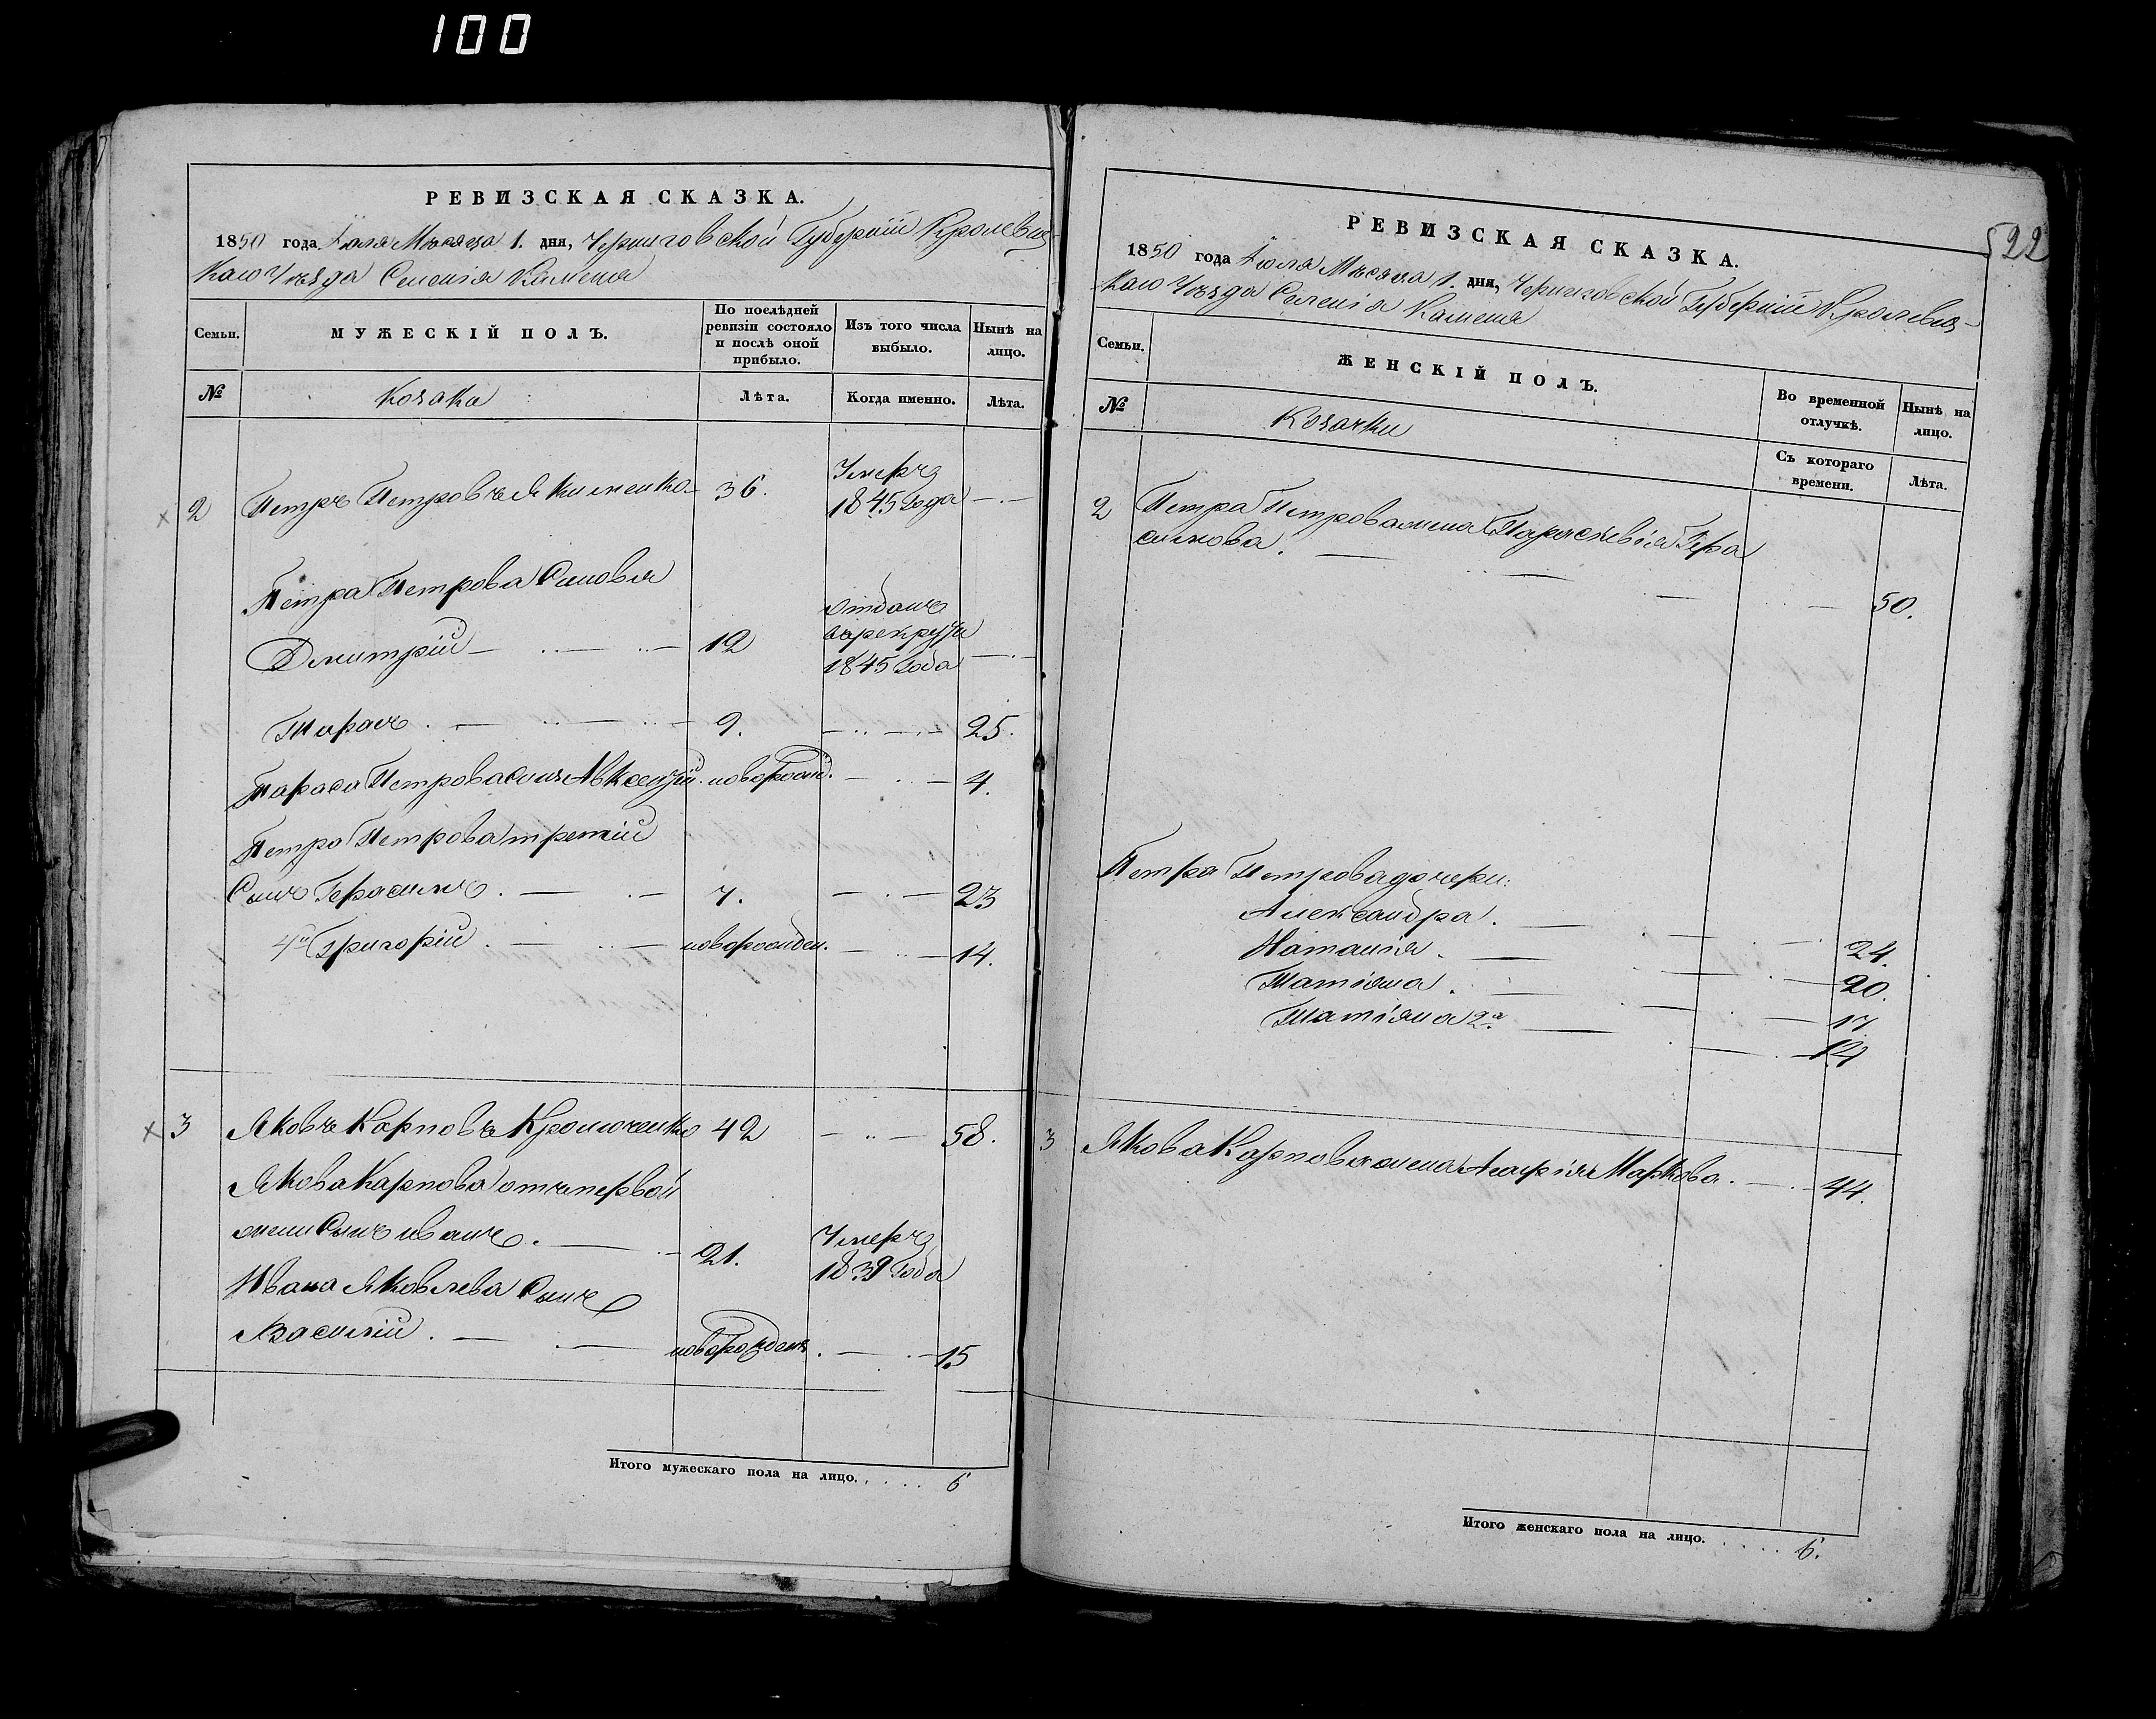 100
РЕВИЗСКАЯ СКАЗКА.
1850 года Іюля Мѣсяца 1. дня, Черниговской Губерніи Кролевец-
каго Уѣзда Селенія Каменя
Семьи. МУЖЕСКІЙ ПОЛЪ. По послѣдней ревизіи состояло и послѣ оной прибыло. Изъ того числа выбыло. Нынѣ на лицо.
№ Козаки Лѣта. Когда именно. Лѣта.
2 Петръ Петровъ Якименко 36. Умеръ 1845 Года —
Петра Петрова Сыновья
Дмитрій — 12 отданъ въ рекруты 1845 Года —
Тарасъ . — 9. — 25.
Тараса Петрова сынъ Авксентій новорожд. — 4.
Петра Петрова третій
Сынъ Герасимъ . — 7. — 23
4й Григорій . — новорожден. — 14.
3 Яковъ Карповъ Кромченко 42 — 58.
Якова Карпова отъ первой
жены Сынъ Иванъ . — 21. Умеръ 1839 Года
Ивана Яковлева Сынъ
Василій . — новорожденъ . — 15
Итого мужескаго пола на лицо. . . . . 6
522
РЕВИЗСКАЯ СКАЗКА.
1850 года Іюля Мѣсяца 1. дня, Черниговской Губерніи Кролевец-
каго Уѣзда Селенія Каменя
Семьи. ЖЕНСКІЙ ПОЛЪ. Во временной отлучкѣ. Нынѣ на лицо.
№ Козачки Съ котораго времени. Лѣта.
2 Петра Петрова жена Параскевія Гера
симова . — 50.
Петра Петрова дочери:
Александра . — 24.
Наталія . — 20.
Татіяна . — 17.
Татіяна 2я — 14
3 Якова Карпова жена Агафія Маркова . — 44.
Итого женскаго пола на лицо. . . . . 6.